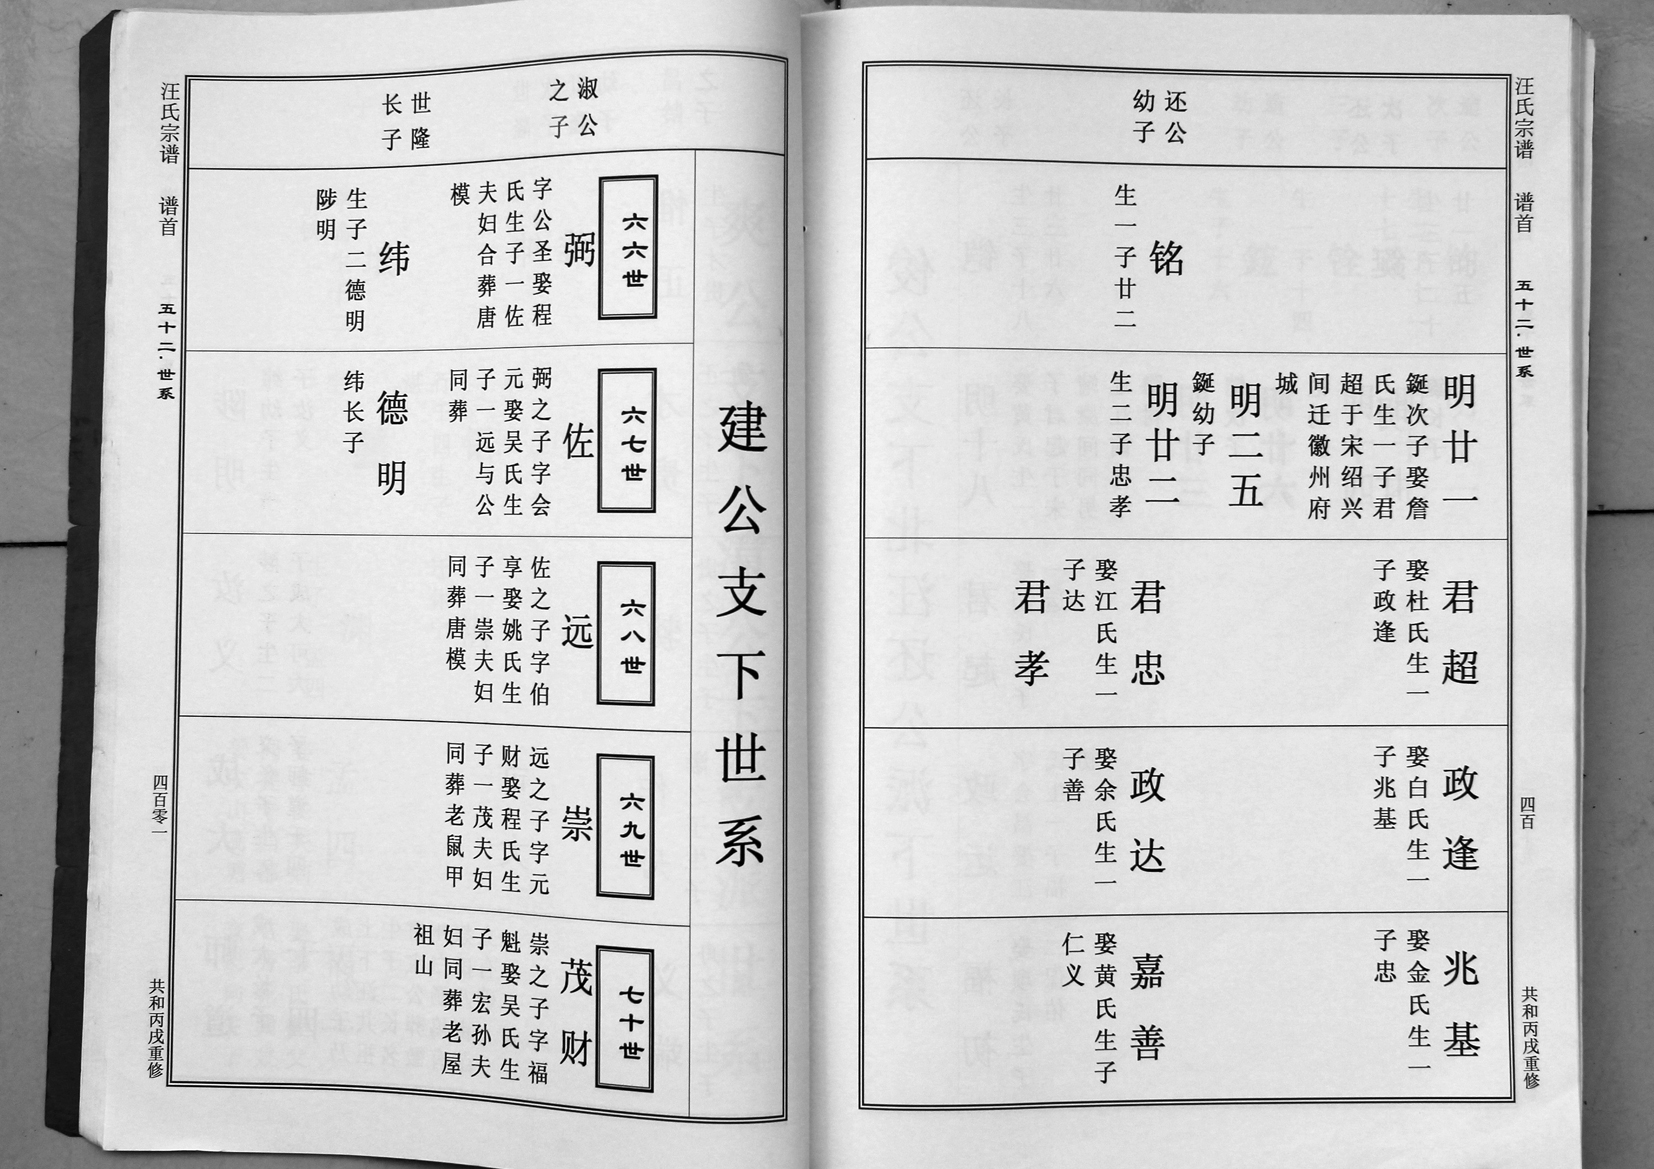 汪氏宗谱 谱首 五十二·世系 四百 共和丙戌重修
还公
幼子
铭
生一子廿二
明廿一
鋋次子娶詹
氏生一子君
超于宋绍兴
间迁徽州府
城
明二五
鋋幼子
明廿二
生二子忠孝
君超
娶杜氏生一
子政逢
君忠
娶江氏生一
子达
君孝
政逢
娶白氏生一
子兆基
政达
娶余氏生一
子善
兆基
娶金氏生一
子忠
嘉善
娶黄氏生子
仁义
建公支下世系
淑公
之子
世隆
长子
六六世
弼
字公圣娶程
氏生子一佐
夫妇合葬唐
模
纬
生子二德明
陟明
六七世
佐
弼之子字会
元娶吴氏生
子一远与公
同葬
德明
纬长子
六八世
远
佐之子字伯
享娶姚氏生
子一崇夫妇
同葬唐模
六九世
崇
远之子字元
财娶程氏生
子一茂夫妇
同葬老鼠甲
七十世
茂财
崇之子字福
魁娶吴氏生
子一宏孙夫
妇同葬老屋
祖山
汪氏宗谱 谱首 五十二·世系 四百零一 共和丙戌重修